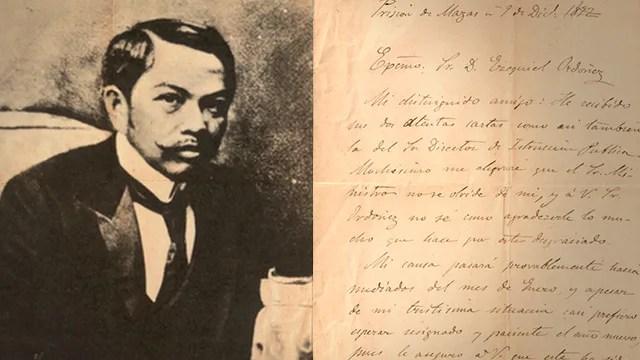 Prision de Mazas á 9 de Dic. 1892
Exćmo. Sr. D. Ezequiel Ordóñez
Mi distinguido amigo: He recibido
sus dos atentas cartas como asi tambien
la del Sr Director de Instrucion Publica
Muchisimo me alegraré que el Sr. Mi-
nistro no se olvide de mi, y á V. Sr.
Ordóñez no sé como agradecerle lo mu-
cho que hace por este desgraciado.
Mi causa pasará provablemente hacia
mediados del mes de Enero, y apesar
de mi tristisima situacion can prefiero
esperar resignado y paciente el año nuevo,
pues le aseguro á V. que este ha